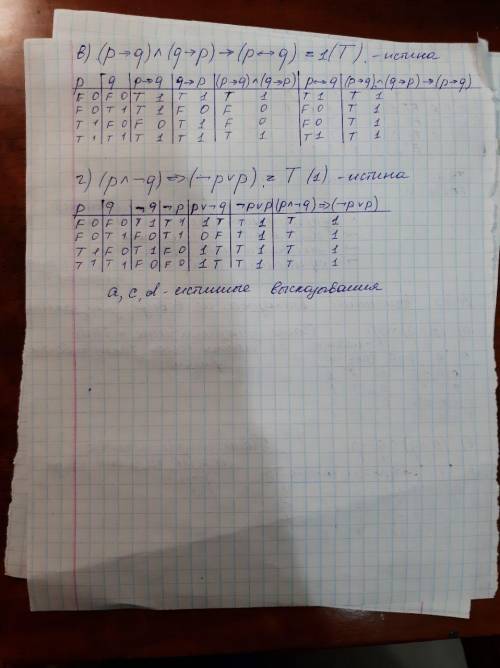 в) (p→q)∧(q→p)→(p↔q) = 1(T). -истина
p q p→q q→p (p→q)∧(q→p) p↔q (p→q)∧(q→p)→(p→q)
F 0 F 0 T 1 T 1 T 1 T 1 T 1
F 0 T 1 T 1 F 0 F 0 F 0 T 1
T 1 F 0 F 0 T 1 F 0 F 0 T 1
T 1 T 1 T 1 T 1 T 1 T 1 T 1
г) (p∧¬q)⇒(¬p∨p). = T (1) -истина
p q ¬q ¬p p∨¬q ¬p∨p (p∧¬q)⇒(¬p∨p)
F 0 F 0 T 1 T 1 1 T T 1 T 1
F 0 T 1 F 0 T 1 0 F T 1 T 1
T 1 F 0 T 1 F 0 1 T T 1 T 1
T 1 T 1 F 0 F 0 1 T T 1 T 1
a, c, d - истинные высказывания